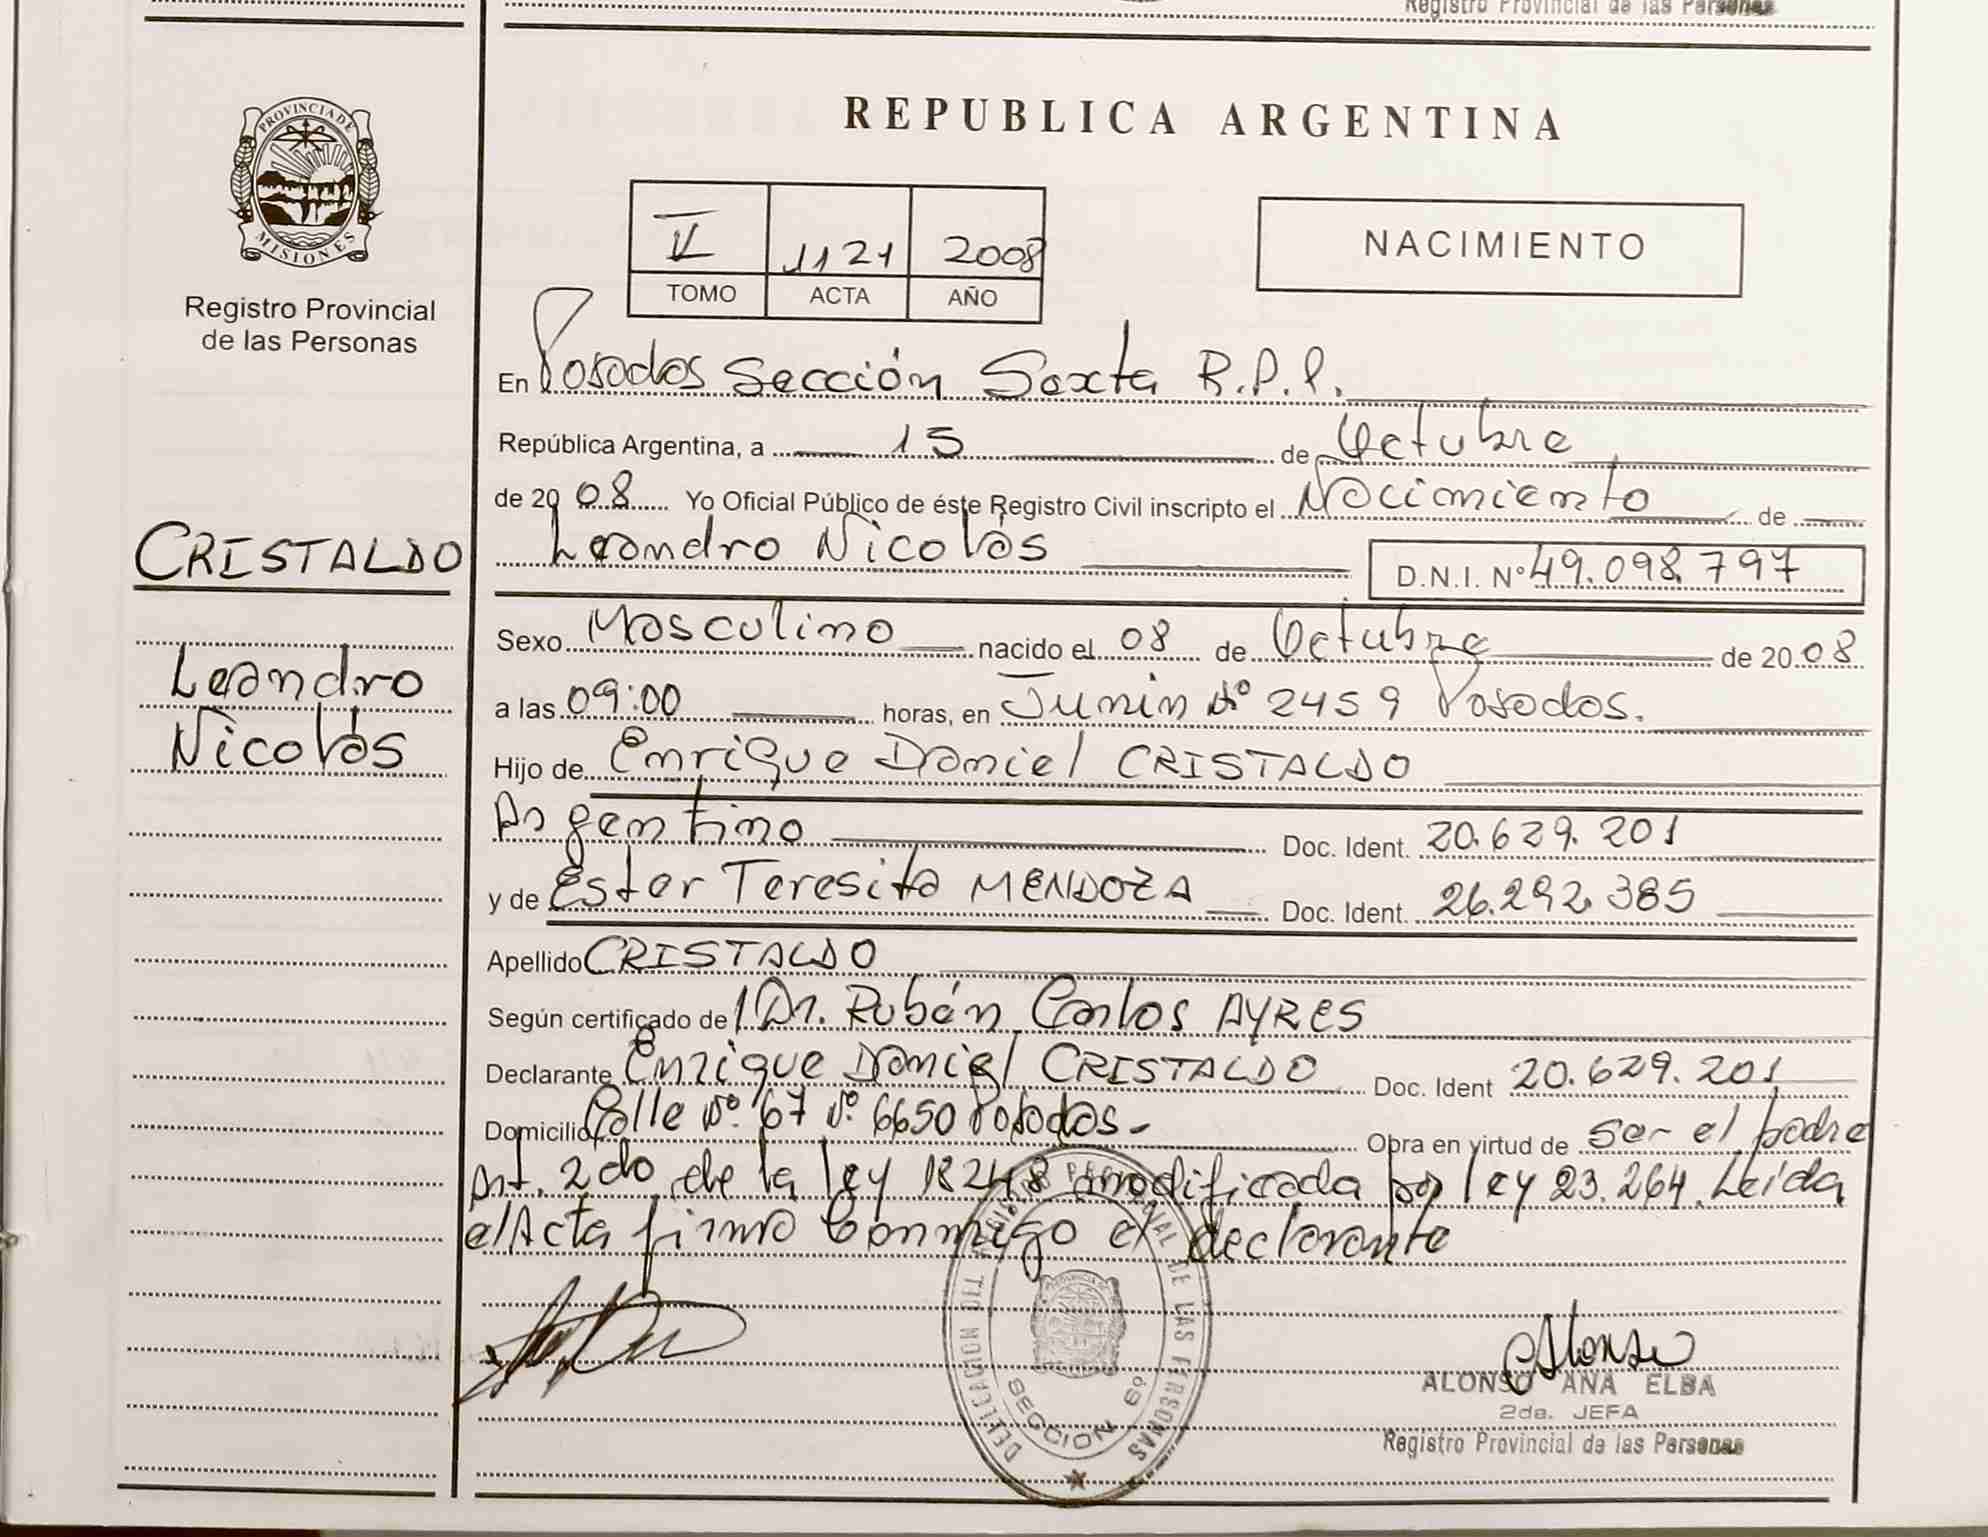 Registro Provincial de las Personas
PROVINCIA DE
MISIONES
Registro Provincial
de las Personas
CRISTALDO
Leandro
Nicolás
REPUBLICA ARGENTINA
1121 2008
TOMO ACTA AÑO
NACIMIENTO
En Posadas Sección Sexta R.P.P.
República Argentina, a 15 de Octubre
de 2008 Yo Oficial Público de éste Registro Civil inscripto el Nacimiento de
Leandro Nicolás D.N.I. Nº 49.098.797
Sexo Masculino nacido el 08 de Octubre de 2008
a las 09:00 horas, en Junin Nº 2459 Posadas.
Hijo de Enrique Daniel CRISTALDO
Argentino Doc. Ident. 20.629.201
y de Ester Teresita MENDOZA Doc. Ident. 26.292.385
Apellido CRISTALDO
Según certificado del Dr. Rubén Carlos AYRES
Declarante Enrique Daniel CRISTALDO Doc. Ident 20.629.201
Domicilio Calle Nº 67 Nº 6650 Posadas.- Obra en virtud de ser el padre
Art. 2do de la ley 18248 modificada por ley 23.264. Leída
el Acta firma conmigo el declarante
DELEGACION DEL REGISTRO PROVINCIAL DE LAS PERSONAS
SECCION 6º
Alonso
ALONSO ANA ELBA
2da. JEFA
Registro Provincial de las Personas